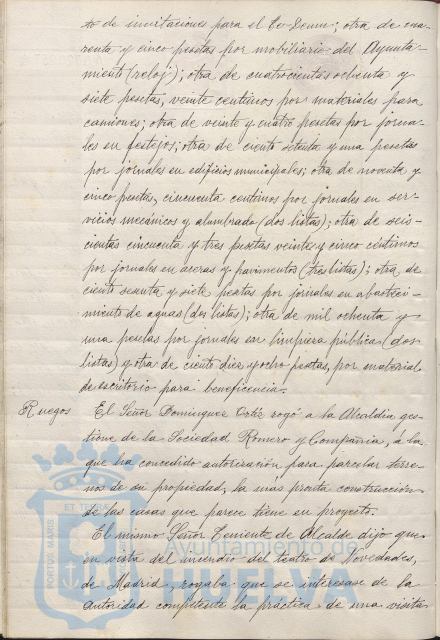 to de invitaciones para el Te Deum; otra de cua-
renta y cinco pesetas por mobiliario del Ayunta-
miento (reloj); otra de cuatrocientas ochenta y
siete pesetas, veinte centimos por materiales para
camiones; otra de veinte y cuatro pesetas por jorna-
les en festejos; otra de ciento setenta y una pesetas
por jornales en edificios municipales; otra de noventa y
cinco pesetas, cincuenta centimos por jornales en ser-
vicios mecánicos y alumbrado (dos listas); otra de seis-
cientas cincuenta y tres pesetas veinte y cinco centimos
por jornales en aceras y pavimentos (tres listas); otra de
ciento sesenta y siete pesetas por jornales en abasteci-
miento de aguas (dos listas); otra de mil ochenta y
una pesetas por jornales en limpieza pública (dos
listas) y otra de ciento diez y ocho pesetas, por material
de escritorio para beneficencia.
Ruegos El Señor Dominguez Ortiz rogó a la Alcaldia ges-
tione de la Sociedad Romero y Compañia, a la
que ha concedido autorización para parcelar terre-
nos de su propiedad, la más pronta construcción
de las casas que parece tiene en proyecto.
El mismo Señor Teniente de Alcalde dijo que
en vista del incendio del teatro de Novedades,
de Madrid, rogaba que se interesase de la
autoridad competente la práctica de una visita
PORTUS MARIS
ET TERRAE
Ayuntamiento de
HUELVA